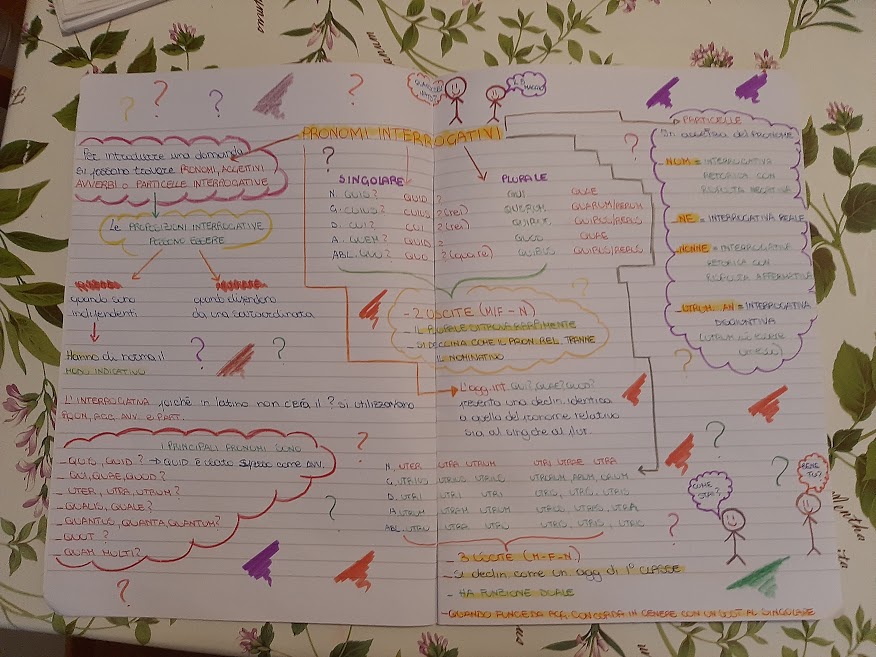 PRONOMI INTERROGATIVI
Per introdurre una domanda
si possono trovare PRONOMI, AGGETTIVI
AVVERBI O PARTICELLE INTERROGATIVE
Le PROPOSIZIONI INTERROGATIVE
POSSONO ESSERE
quando sono
indipendenti
quando dipendono
da una sovraordinata
Hanno di norma il
MODO INDICATIVO
L'INTERROGATIVA, poichè in latino non c'era il ? si utilizzavano
PRON, AGG, AVV. e PART.
I PRINCIPALI PRONOMI SONO
- QUIS, QUID? → QUID È usato spesso come AVV.
- QUI, QUAE, QUOD?
- UTER, UTRA, UTRUM?
- QUALIS, QUALE?
- QUANTUS, QUANTA, QUANTUM?
- QUOT?
- QUAM MULTI?
SINGOLARE
N. QUIS? QUID?
G. CUIUS? CUIUS? (rei)
D. CUI? CUI? (rei)
A. QUEM? QUID?
ABL. QUO? QUO? (quare)
PLURALE
QUI QUAE
QUORUM QUARUM/RERUM
QUIBUS QUIBUS/REBUS
QUOS QUAE
QUIBUS QUIBUS/REBUS
- 2 USCITE (M/F - N)
- IL PLURALE SI TROVA RARAMENTE
- SI DECLINA COME IL PRON. REL. TRANNE
IL NOMINATIVO
L'agg. int. QUI? QUAE? QUOD?
presenta una declin. identica
a quella del pronome relativo
sia al sing che al plur.
N. UTER UTRA UTRUM UTRI UTRAE UTRA
G. UTRIUS UTRIUS UTRIUS UTRORUM, ARUM, ORUM
D. UTRI UTRI UTRI UTRIS, UTRIS, UTRIS
A. UTRUM UTRAM UTRUM UTROS, UTRAS, UTRA
ABL. UTRO UTRA UTRO UTRIS, UTRIS, UTRIS
- 3 USCITE (M-F-N)
- Si declin come un agg di 1° CLASSE
- HA FUNZIONE DUALE
- QUANDO FUNGE DA AGG, CONCORDA IN GENERE CON UN SOST AL SINGOLARE
PARTICELLE
In assenza del PRONOME
NUM = INTERROGATIVA
RETORICA CON
RISPOSTA NEGATIVA
NE = INTERROGATIVA REALE
NONNE = INTERROGATIVA
RETORICA CON
RISPOSTA AFFERMATIVA
UTRUM..AN = INTERROGATIVA
DISGIUNTIVA
COME
STAI?
BENE
TU?